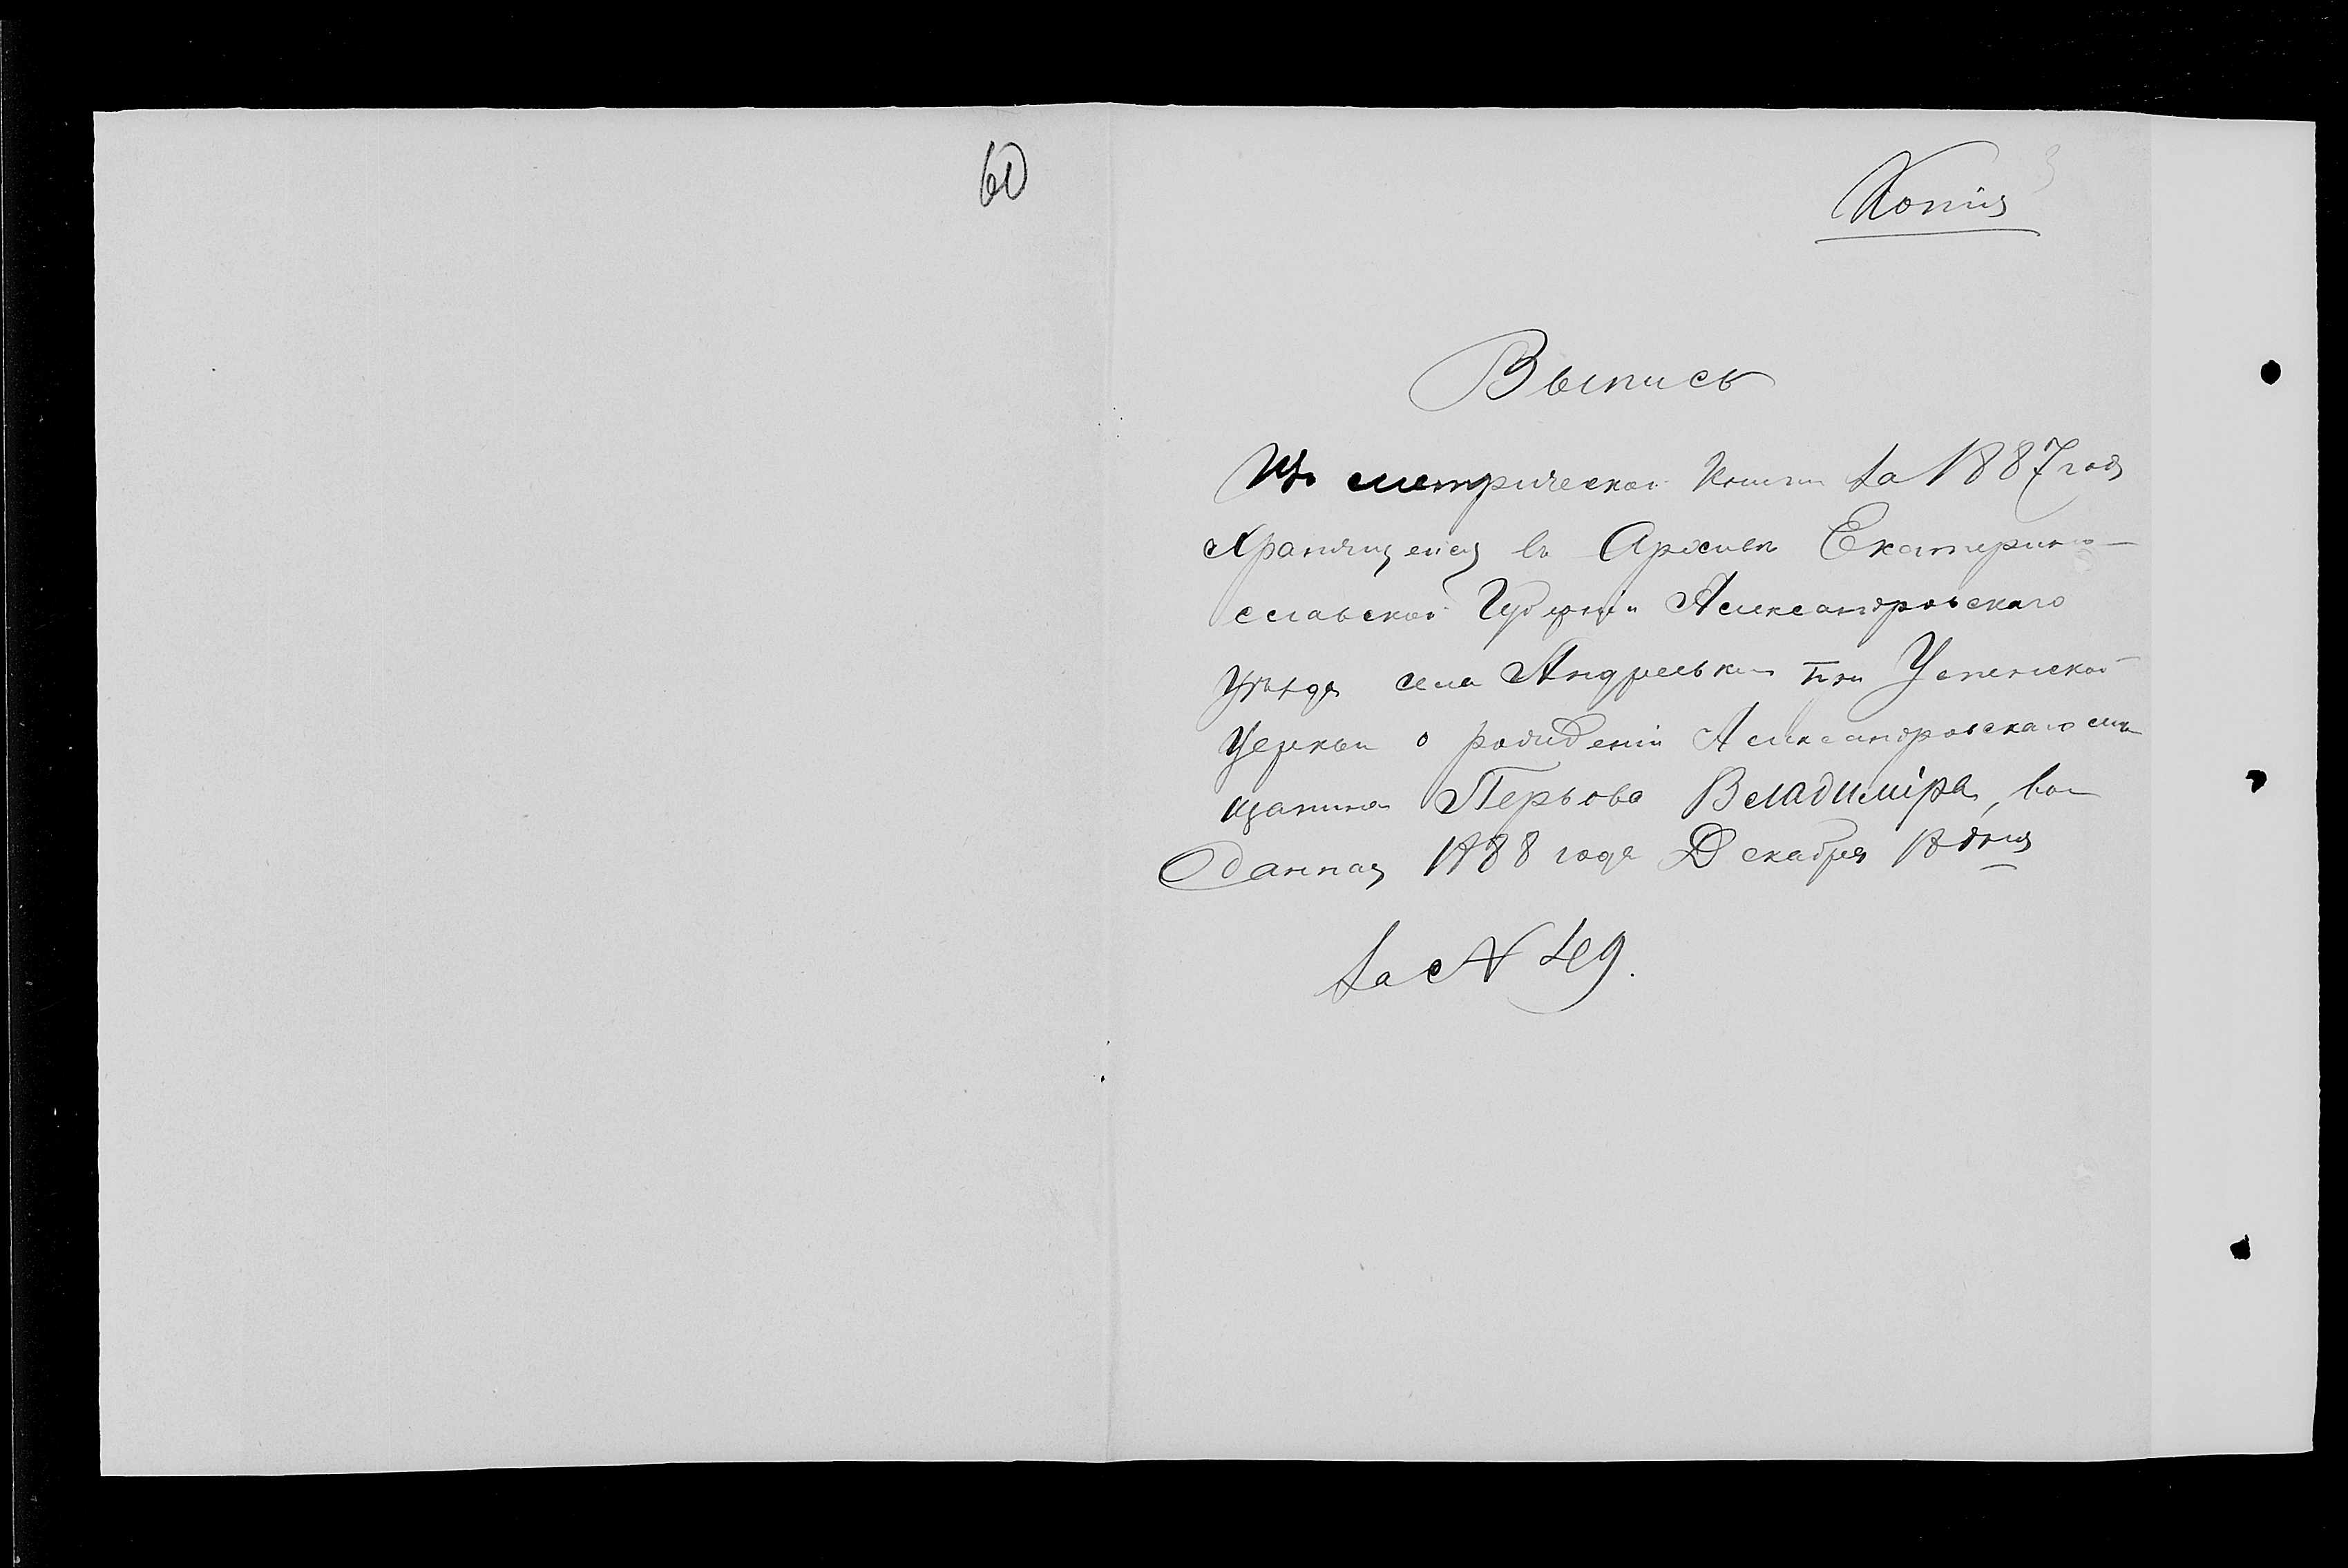 60
Копія
3
Выпись
Изъ метрической Книги за 1887 годъ
Хранящейся въ Архивѣ Екатерино-
славской Губерніи Александровскаго
уѣзда села Андреевки при Успенской
Церкви о рожденіи Александровскаго мѣ
щанина Перьова Владиміра, вы
данная 1888 года Декабря дня
За № 49.